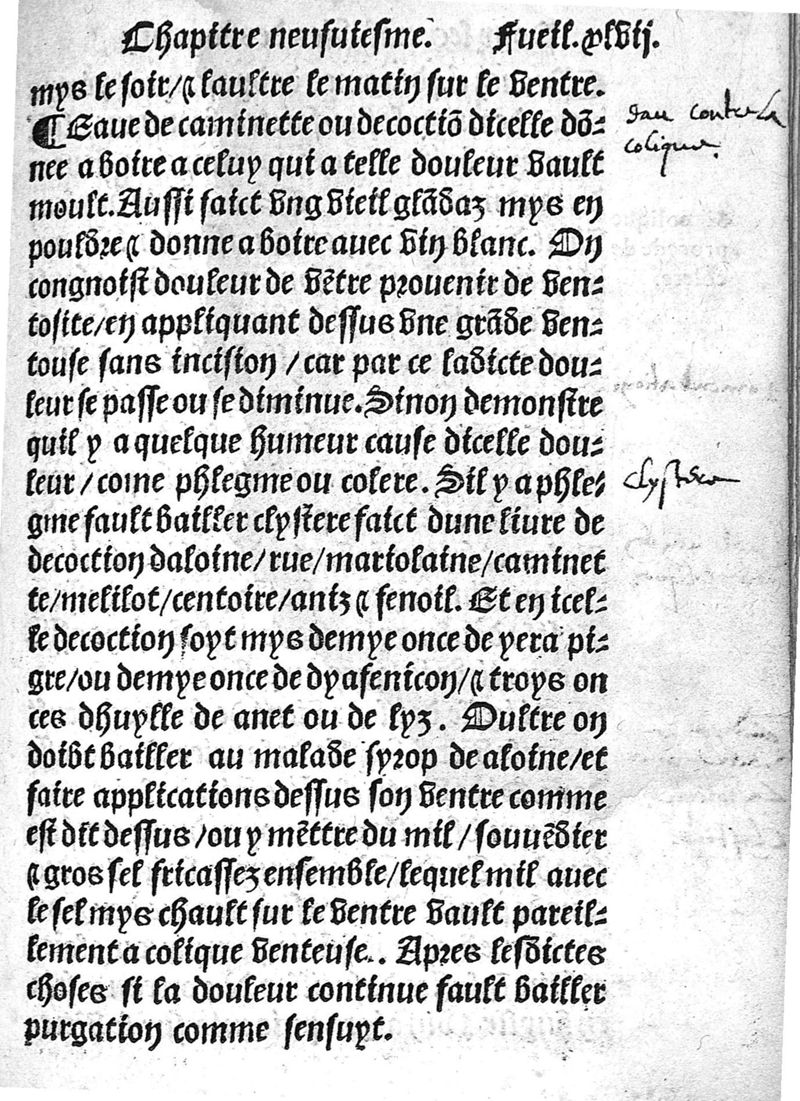 Chapitre neufuiesme. Fueil. xlvij.
mys le soir/⁊ laultre le matin sur le ventre.
¶ Eaue de caminette ou decoctiõ dicelle dõ⸗
nee a boire a celuy qui a telle douleur vault
moult. Aussi faict vng vieil glãdaz mys en
pouldre ⁊ donne a boire auec vin blanc. On
congnoist douleur de vẽtre prouenir de ven⸗
tosite/en appliquant dessus vne grãde ven⸗
touse sans incision / car par ce ladicte dou⸗
leur se passe ou se diminue. Sinon demonstre
quil y a quelque humeur cause dicelle dou⸗
leur / come phlegme ou colere. Sil y a phle⸗
gme fault bailler clystere faict dune liure de
decoction daloine/rue/mariolaine/caminet
te/melilot/centoire/aniz ⁊ fenoil. Et en icel⸗
le decoction soyt mys demye once de yera pi⸗
gre/ou demye once de dyafenicon/⁊ troys on
ces dhuylle de anet ou de lyz. Oultre on
doibt bailler au malade syrop de aloine/et
faire applications dessus son ventre comme
est dit dessus /ou y mẽttre du mil / souuẽdier
⁊ gros sel fricassez ensemble/lequel mil auec
le sel mys chault sur le ventre vault pareil⸗
lement a colique venteuse.. Apres lesdictes
choses si la douleur continue fault bailler
purgation comme sensuyt.
eau contre la
colique.
clystere